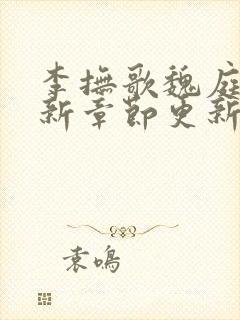 李撫歌魏庭
新章節更新
袁鳴